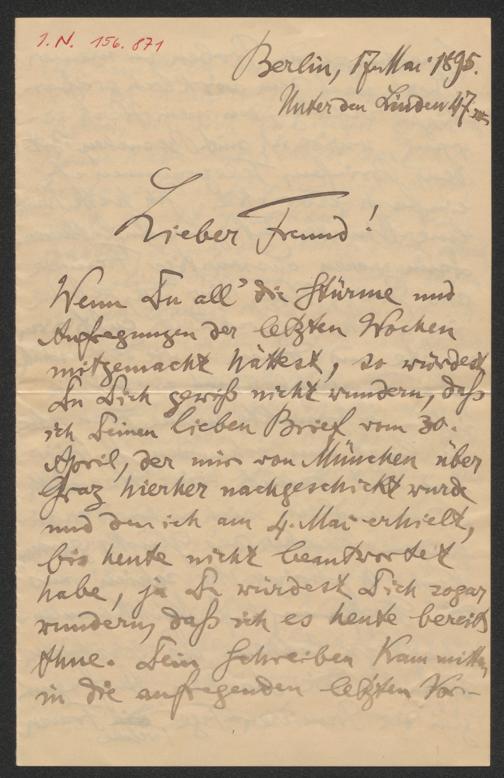 I. N. 156.871
Berlin, 17. Mai 1895.
Unter den Linden 47
Lieber Freund!
Wenn Du all' die Stürme und
Aufregungen der letzten Wochen
mitgemacht hättest, so würdest
Du Dich gewiß nicht wundern, daß
ich Deinen lieben Brief vom 30.
April, der mir von München über
Graz hierher nachgeschickt wurde
und den ich am 4. Mai erhielt,
bis heute nicht beantwortet
habe, ja Du würdest Dich sogar
wundern, daß ich es heute bereits
thue. Dein Schreiben kam mitten
in die aufregenden letzten Vor-